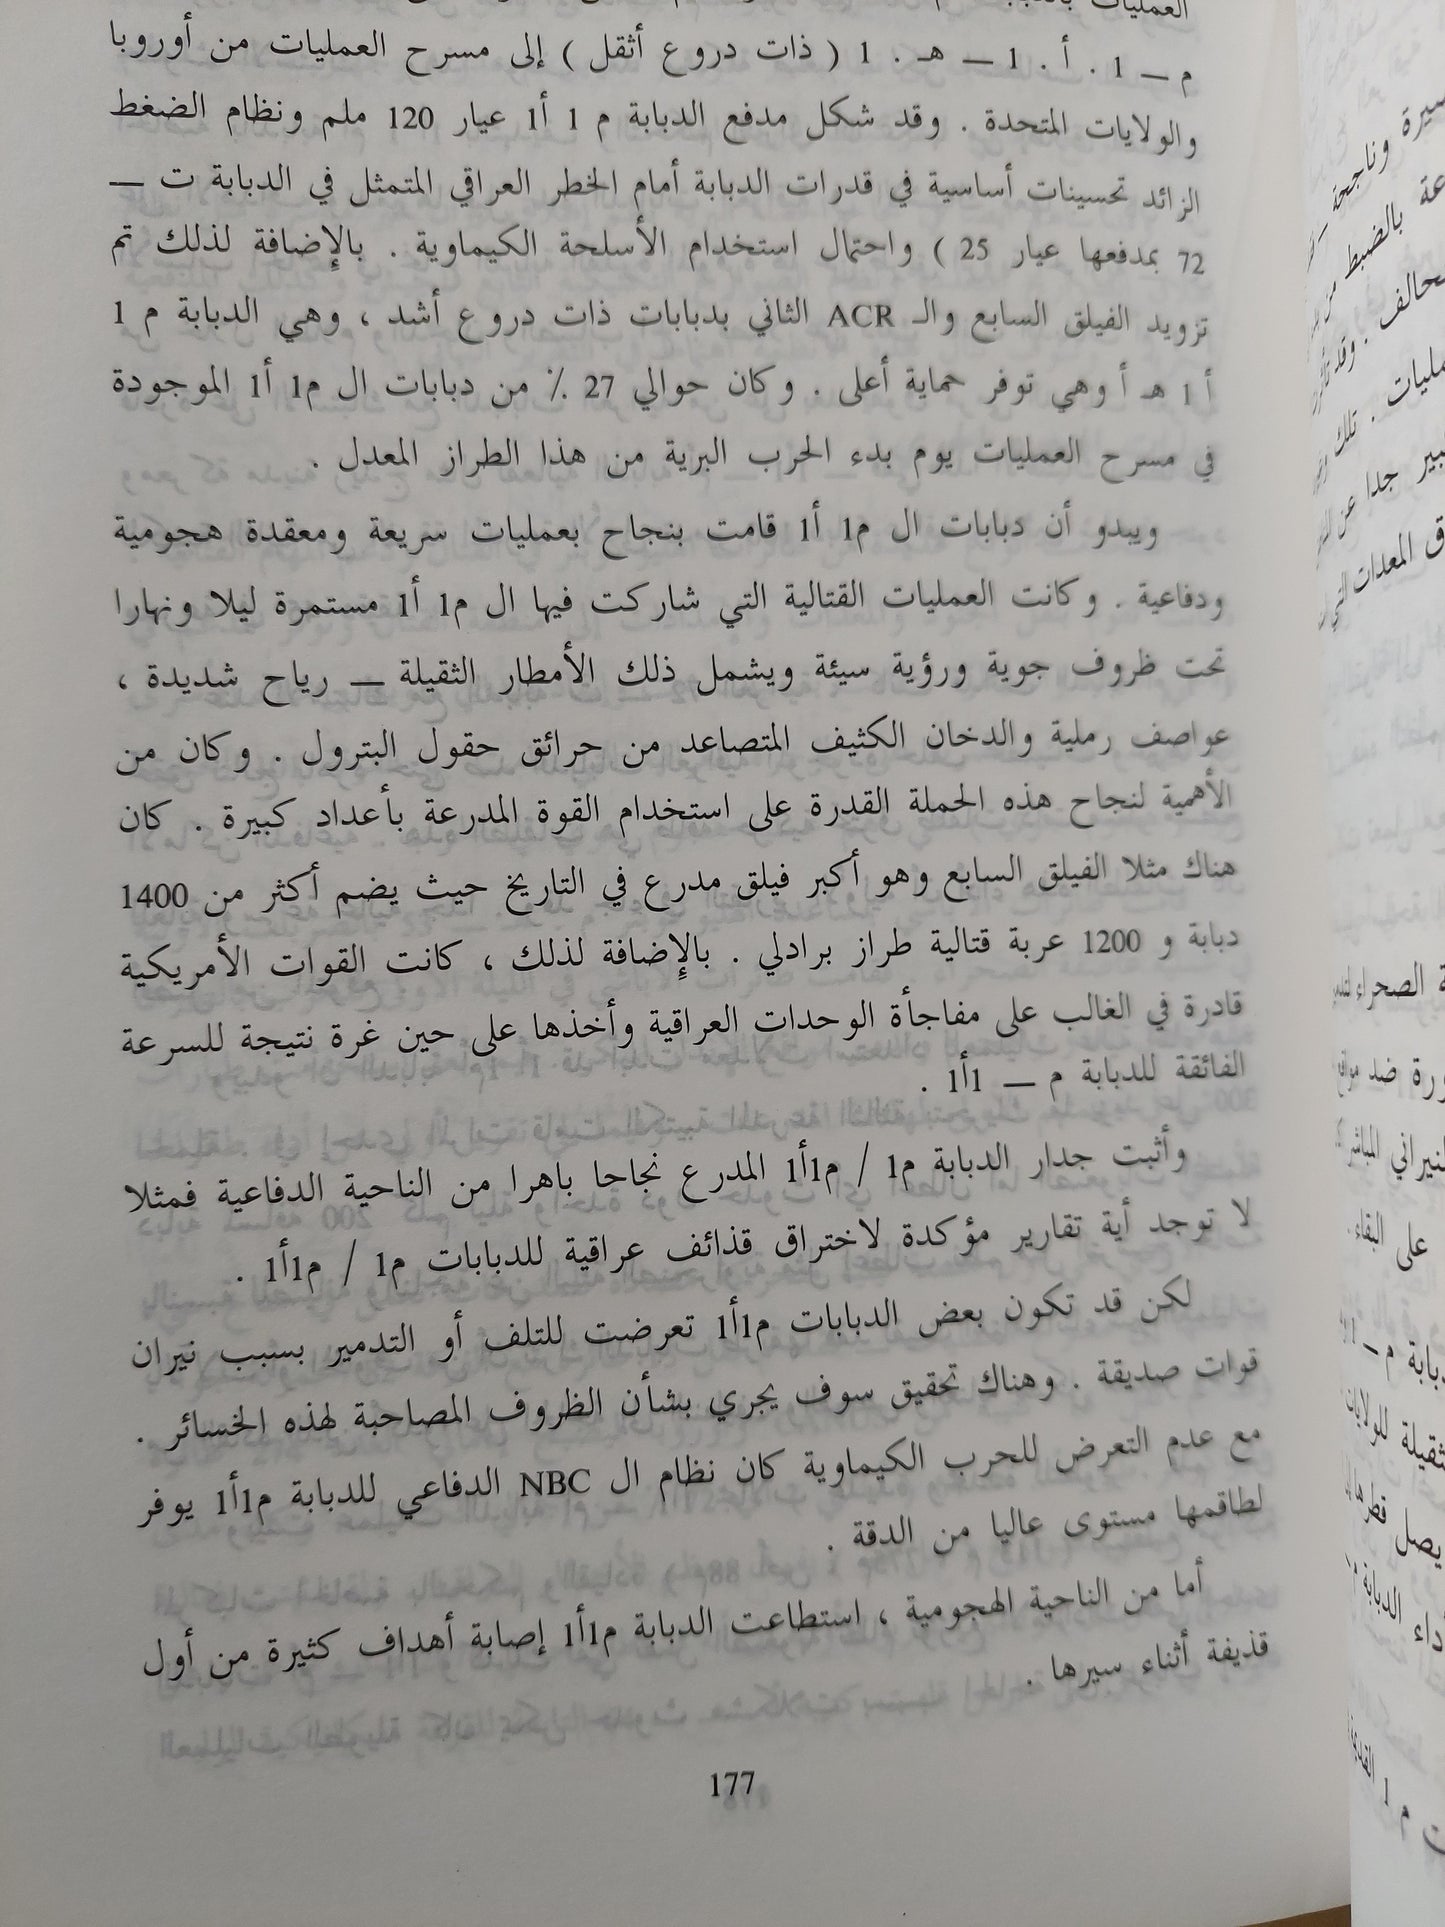 العمليات
م — 1 . أ . 1 — هـ . 1 ( ذات دروع أثقل ) إلى مسرح العمليات من أوروبا
والولايات المتحدة . وقد شكل مدفع الدبابة م 1 أ1 عيار 120 ملم ونظام الضغط
الزائد تحسينات أساسية في قدرات الدبابة أمام الخطر العراقي المتمثل في الدبابة ت —
72 بمدفعها عيار 25 ) واحتمال استخدام الأسلحة الكيماوية . بالإضافة لذلك تم
تزويد الفيلق السابع والـ ACR الثاني بدبابات ذات دروع أشد ، وهي الدبابة م 1
أ 1 هـ أ وهي توفر حماية أعلى . وكان حوالي 27 ٪ من دبابات ال م1 أ1 الموجودة
في مسرح العمليات يوم بدء الحرب البرية من هذا الطراز المعدل .
ويبدو أن دبابات ال م1 أ1 قامت بنجاح بعمليات سريعة ومعقدة هجومية
ودفاعية . وكانت العمليات القتالية التي شاركت فيها ال م1 أ1 مستمرة ليلا ونهارا
تحت ظروف جوية ورؤية سيئة ويشمل ذلك الأمطار الثقيلة — رياح شديدة ،
عواصف رملية والدخان الكثيف المتصاعد من حرائق حقول البترول . وكان من
الأهمية لنجاح هذه الحملة القدرة على استخدام القوة المدرعة بأعداد كبيرة . كان
هناك مثلا الفيلق السابع وهو أكبر فيلق مدرع في التاريخ حيث يضم أكثر من 1400
دبابة و 1200 عربة قتالية طراز برادلي . بالإضافة لذلك ، كانت القوات الأمريكية
قادرة في الغالب على مفاجأة الوحدات العراقية وأخذها على حين غرة نتيجة للسرعة
الفائقة للدبابة م — 1أ1 .
وأثبت جدار الدبابة م1 / م1أ1 المدرع نجاحا باهرا من الناحية الدفاعية فمثلا
لا توجد أية تقارير مؤكدة لاختراق قذائف عراقية للدبابات م1 / م1أ1 .
لكن قد تكون بعض الدبابات م1أ1 تعرضت للتلف أو التدمير بسبب نيران
قوات صديقة . وهناك تحقيق سوف يجري بشأن الظروف المصاحبة لهذه الخسائر .
مع عدم التعرض للحرب الكيماوية كان نظام ال NBC الدفاعي للدبابة م1أ1 يوفر
لطاقمها مستوى عاليا من الدقة .
أما من الناحية الهجومية ، استطاعت الدبابة م1أ1 إصابة أهداف كثيرة من أول
قذيفة أثناء سيرها .
177
وناجحة
بالضبط من
وقد
تلك
جدا عن
المعدات التي
الصحراء
ضد
على البقاء .
يصل قطرها
الدبابة
م 1